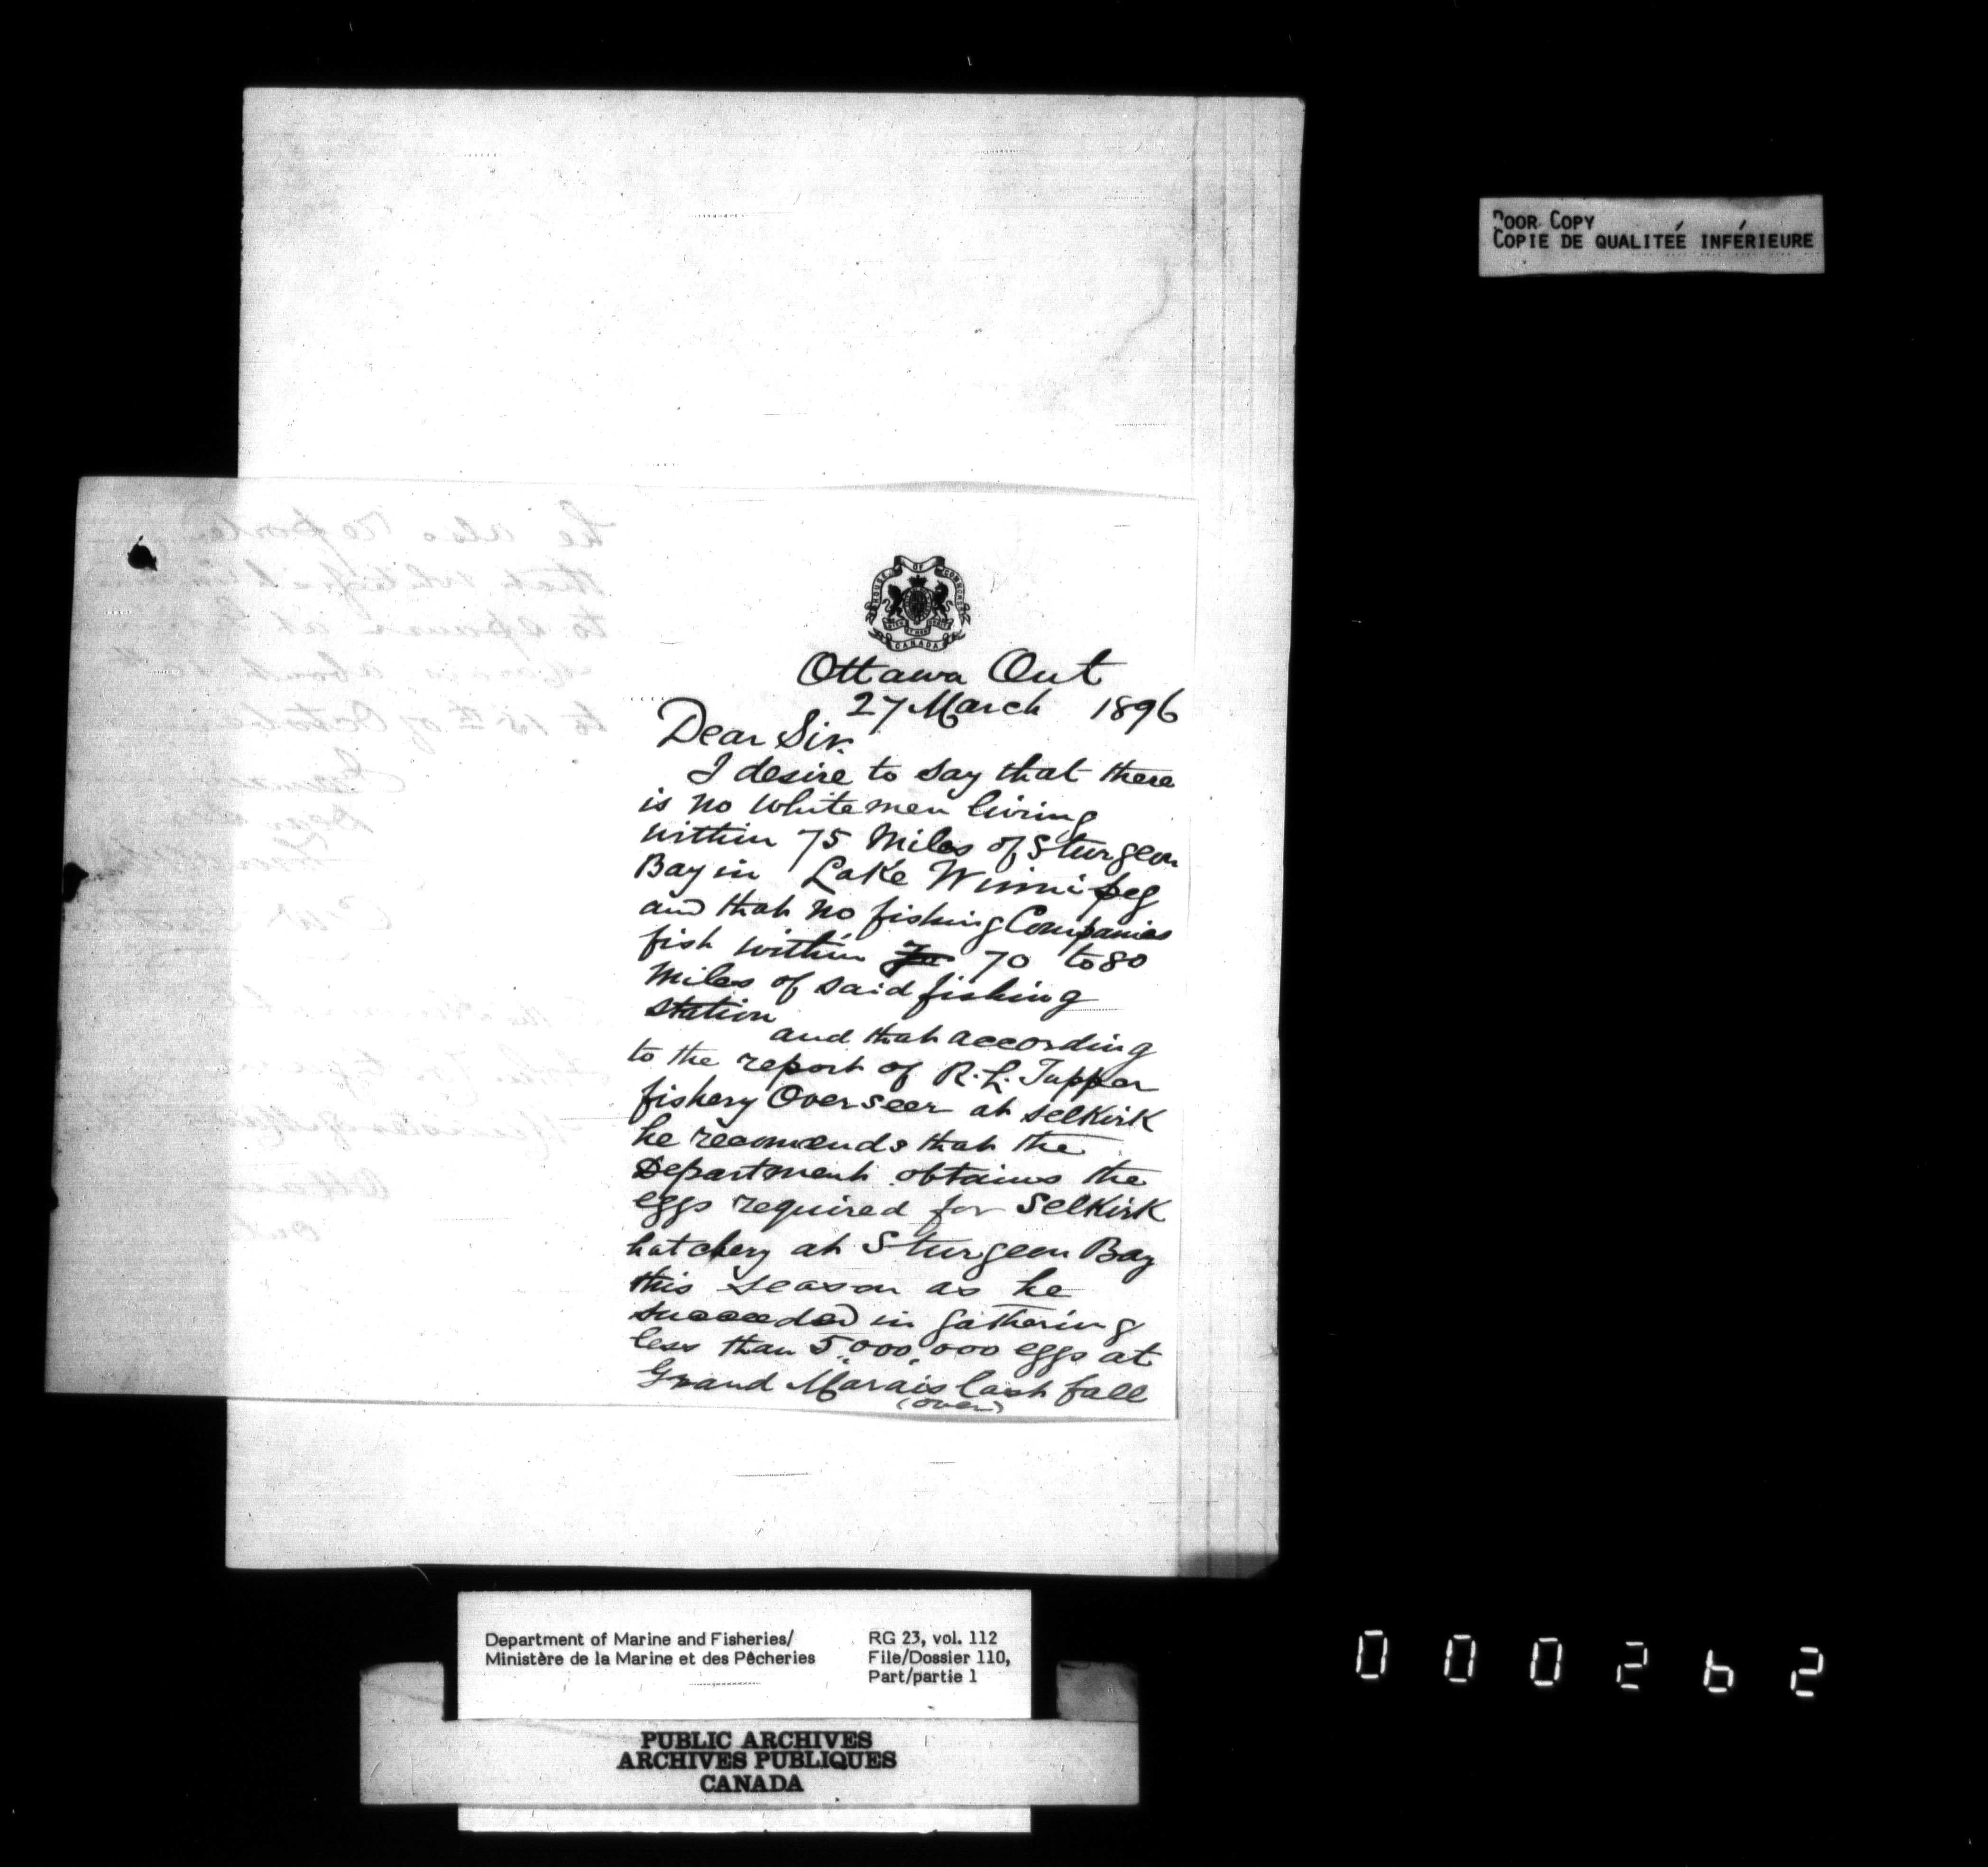 POOR COPY
COPIE DE QUALITEÉ INFÉRIEURE
HOUSE OF COMMONS
CANADA
Ottawa Ont
27 March 1896
Dear Sir.
I desire to say that there
is no white men living
within 75 Miles of Sturgeon
Bay in Lake Winnipeg
and that no fishing Companies
fish within 70 to 80
Miles of said fishing
station
and that according
to the report of R. L. Tupper
fishery Overseer at Selkirk
he recomends that the
Department obtains the
eggs required for Selkirk
hatchery at Sturgeon Bay
this season as he
succeeded in gathering
less than 5,000,000 eggs at
Grand Marais last fall
(over)
he also reports
that whitefish
to spawn at
Marais about 10th
to 15th of October
Ottawa
Ont
Department of Marine and Fisheries/
Ministère de la Marine et des Pêcheries
RG 23, vol. 112
File/Dossier 110,
Part/partie 1
PUBLIC ARCHIVES
ARCHIVES PUBLIQUES
CANADA
000262